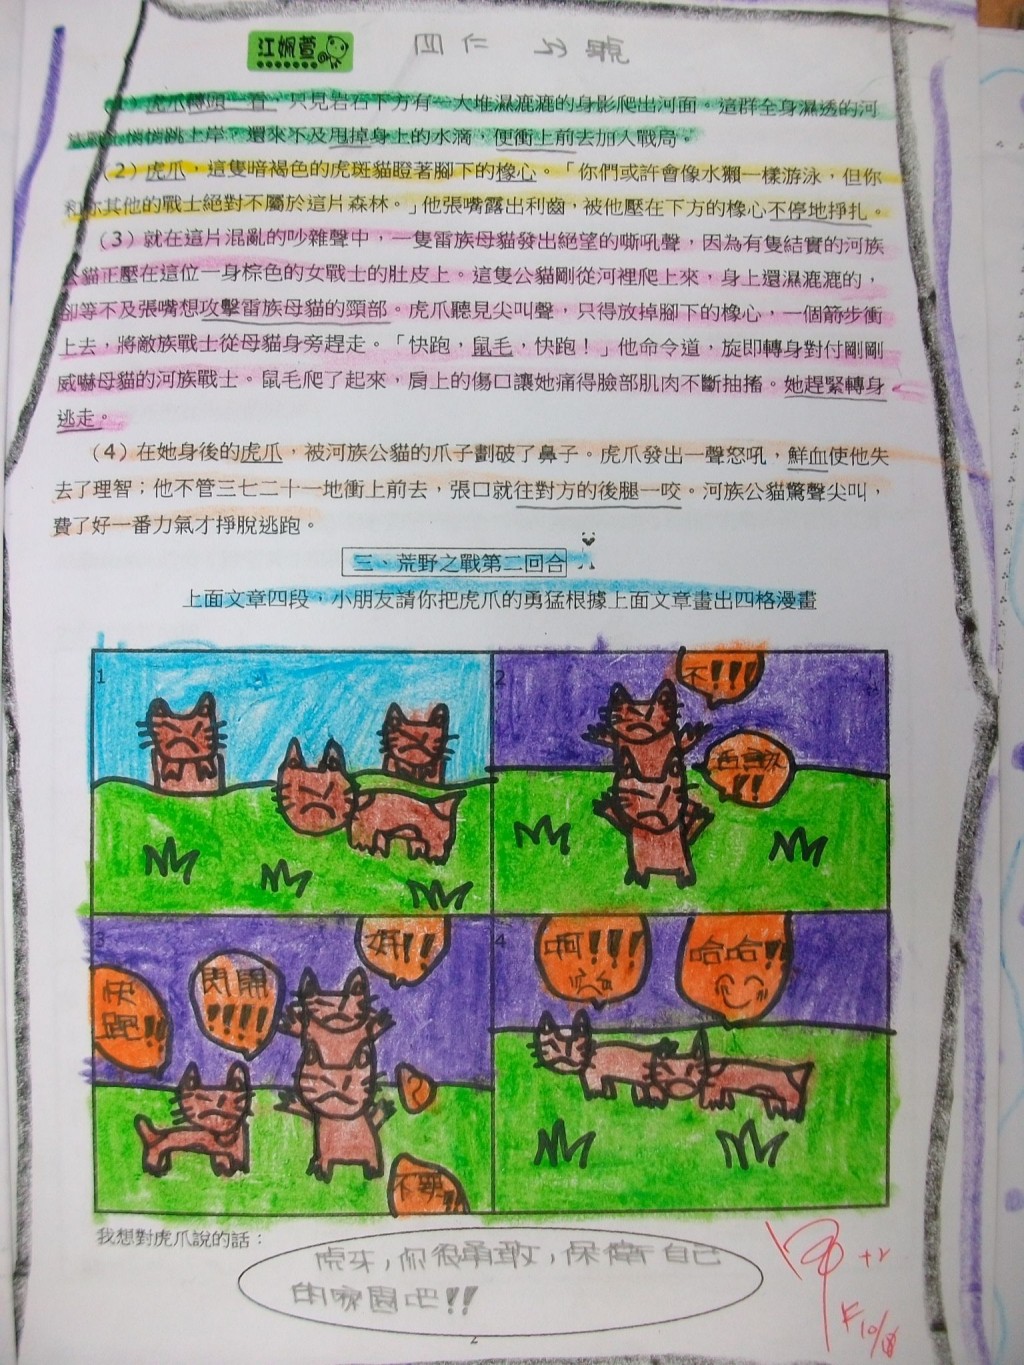 江姵萱
(1) 虎爪轉頭一看，只見岩石下方有一大堆濕漉漉的身影爬出河面。這群全身濕透的河
族戰士悄悄跳上岸，還來不及甩掉身上的水滴，便衝上前去加入戰局。
(2) 虎爪，這隻暗褐色的虎斑貓瞪著腳下的橡心。「你們或許會像水獺一樣游泳，但你
和你其他的戰士絕對不屬於這片森林。」他張嘴露出利齒，被他壓在下方的橡心不停地掙扎。
(3) 就在這片混亂的吵雜聲中，一隻雷族母貓發出絕望的嘶吼聲，因為有隻結實的河族
公貓正壓在這位一身棕色的女戰士的肚皮上。這隻公貓剛從河裡爬上來，身上還濕漉漉的，
卻等不及張嘴想攻擊雷族母貓的頸部。虎爪聽見尖叫聲，只得放掉腳下的橡心，一個箭步衝
上去，將敵族戰士從母貓身旁趕走。「快跑，鼠毛，快跑！」他命令道，旋即轉身對付剛剛
威嚇母貓的河族戰士。鼠毛爬了起來，肩上的傷口讓她痛得臉部肌肉不斷抽搐。她趕緊轉身
逃走。
(4) 在她身後的虎爪，被河族公貓的爪子劃破了鼻子。虎爪發出一聲怒吼，鮮血使他失
去了理智；他不管三七二十一地衝上前去，張口就往對方的後腿一咬。河族公貓驚聲尖叫，
費了好一番力氣才掙脫逃跑。
三、荒野之戰第二回合
上面文章四段，小朋友請你把虎爪的勇猛根據上面文章畫出四格漫畫
1
2
不!!!
3
快跑!!
閃開!!!!
好!!
?
4
啊!!!
哈哈!!
我想對虎爪說的話：
虎爪，你很勇敢，保衛自己
的家園吧!!
2
+2